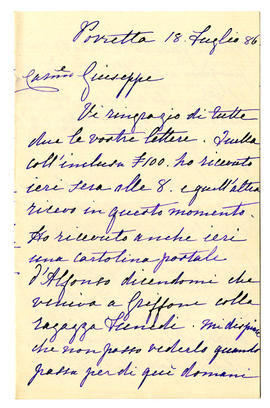 Porretta 18. Luglio 86
Carmo Giuseppe
Vi ringrazio di tutte
due le vostre lettere. Quella
coll'inclusa £100. ho ricevuto
ieri sera alle 8. e quell'altra
ricevo in questo momento.
Ho ricevuto anche ieri
una cartolina postale
d'Alfonso dicendomi che
veniva a Griffone colla
ragazza Lunedì. Mi dispiace
che non posso vederlo quando
passa per di quì domani